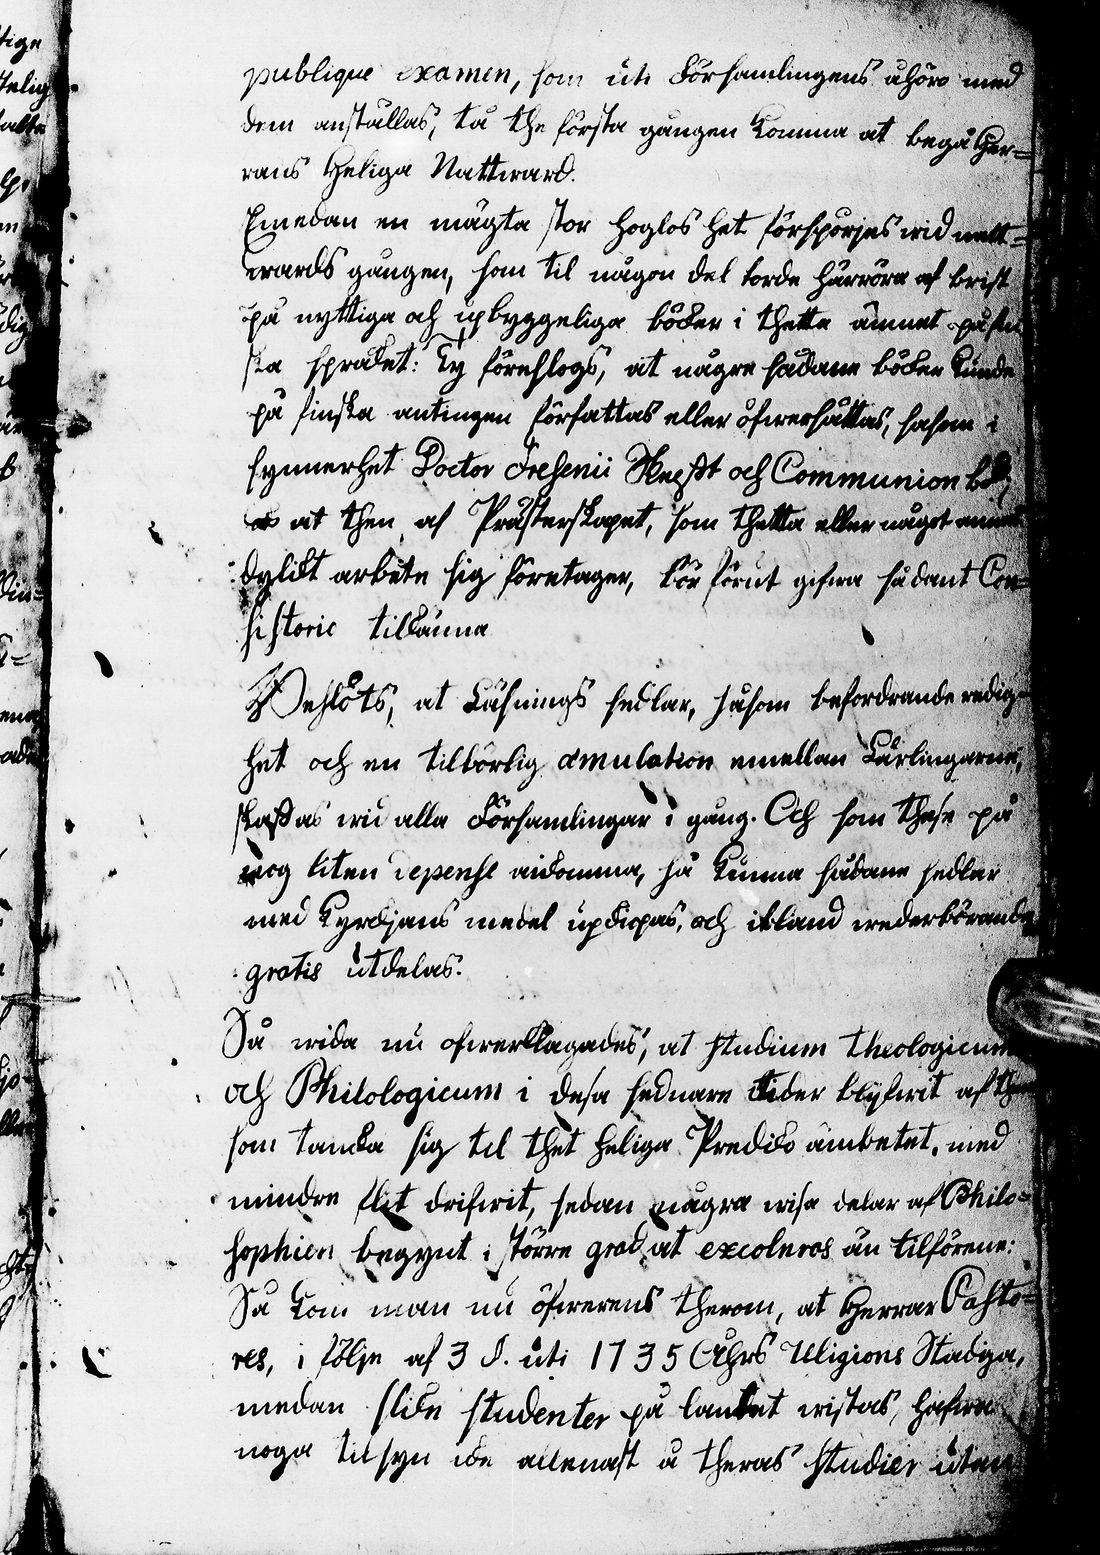 publique examen, som uti Församlingens åhöro med
dem anställas, tå the första gången komma at begå Her=
rans Heliga Nattward.
Emedan en mägta stor hoglöshet förspörjes wid natt=
wards gången, som til någon del torde härröra af brist
på nyttiga och upbyggeliga böcker i thetta ämnet på fin
ska språket: Ty föreslogs, at någre sådane böcker kunde
på finska antingen författas eller öfwersättas, såsom i
synnerhet Doctor Fresenii Beicht och Communion bok,
at then af Prästerskapet, som thetta eller något annat
dylikt arbete sig företager, bör förut gifwa sådant Con=
sistorio tilkänna
Beslöts, at Läsnings sedlar, såsom befordrande redig=
het och en tilbörlig æmulation emellan Lärlingarne,
skaffas wid alla Församlingar i gång. Och som these på
nog liten depense ankomma, så kunna sådane sedlar
med Kyrckjans medel upkiöpas, och ibland wederbörande
gratis utdelas.
Så wida nu öfwerklagades, at studium theologicum
och Philologicum i desa sednare tider blifwit af them
som täncka sig til thet heliga Predicko ämbetet, med
mindre flit drifwit, sedan några wisa delar af Philo=
sophien begynt i större grad at excoleras än tilförene:
Så kom man nu öfwerens therom, at Herrar Pasto=
res, i följe af 3 §. uti 1735 Åhrs Religions Stadga,
medan slike studenter på landet wistas, hafwa
noga tilsyn icke allenast å theras studier utan